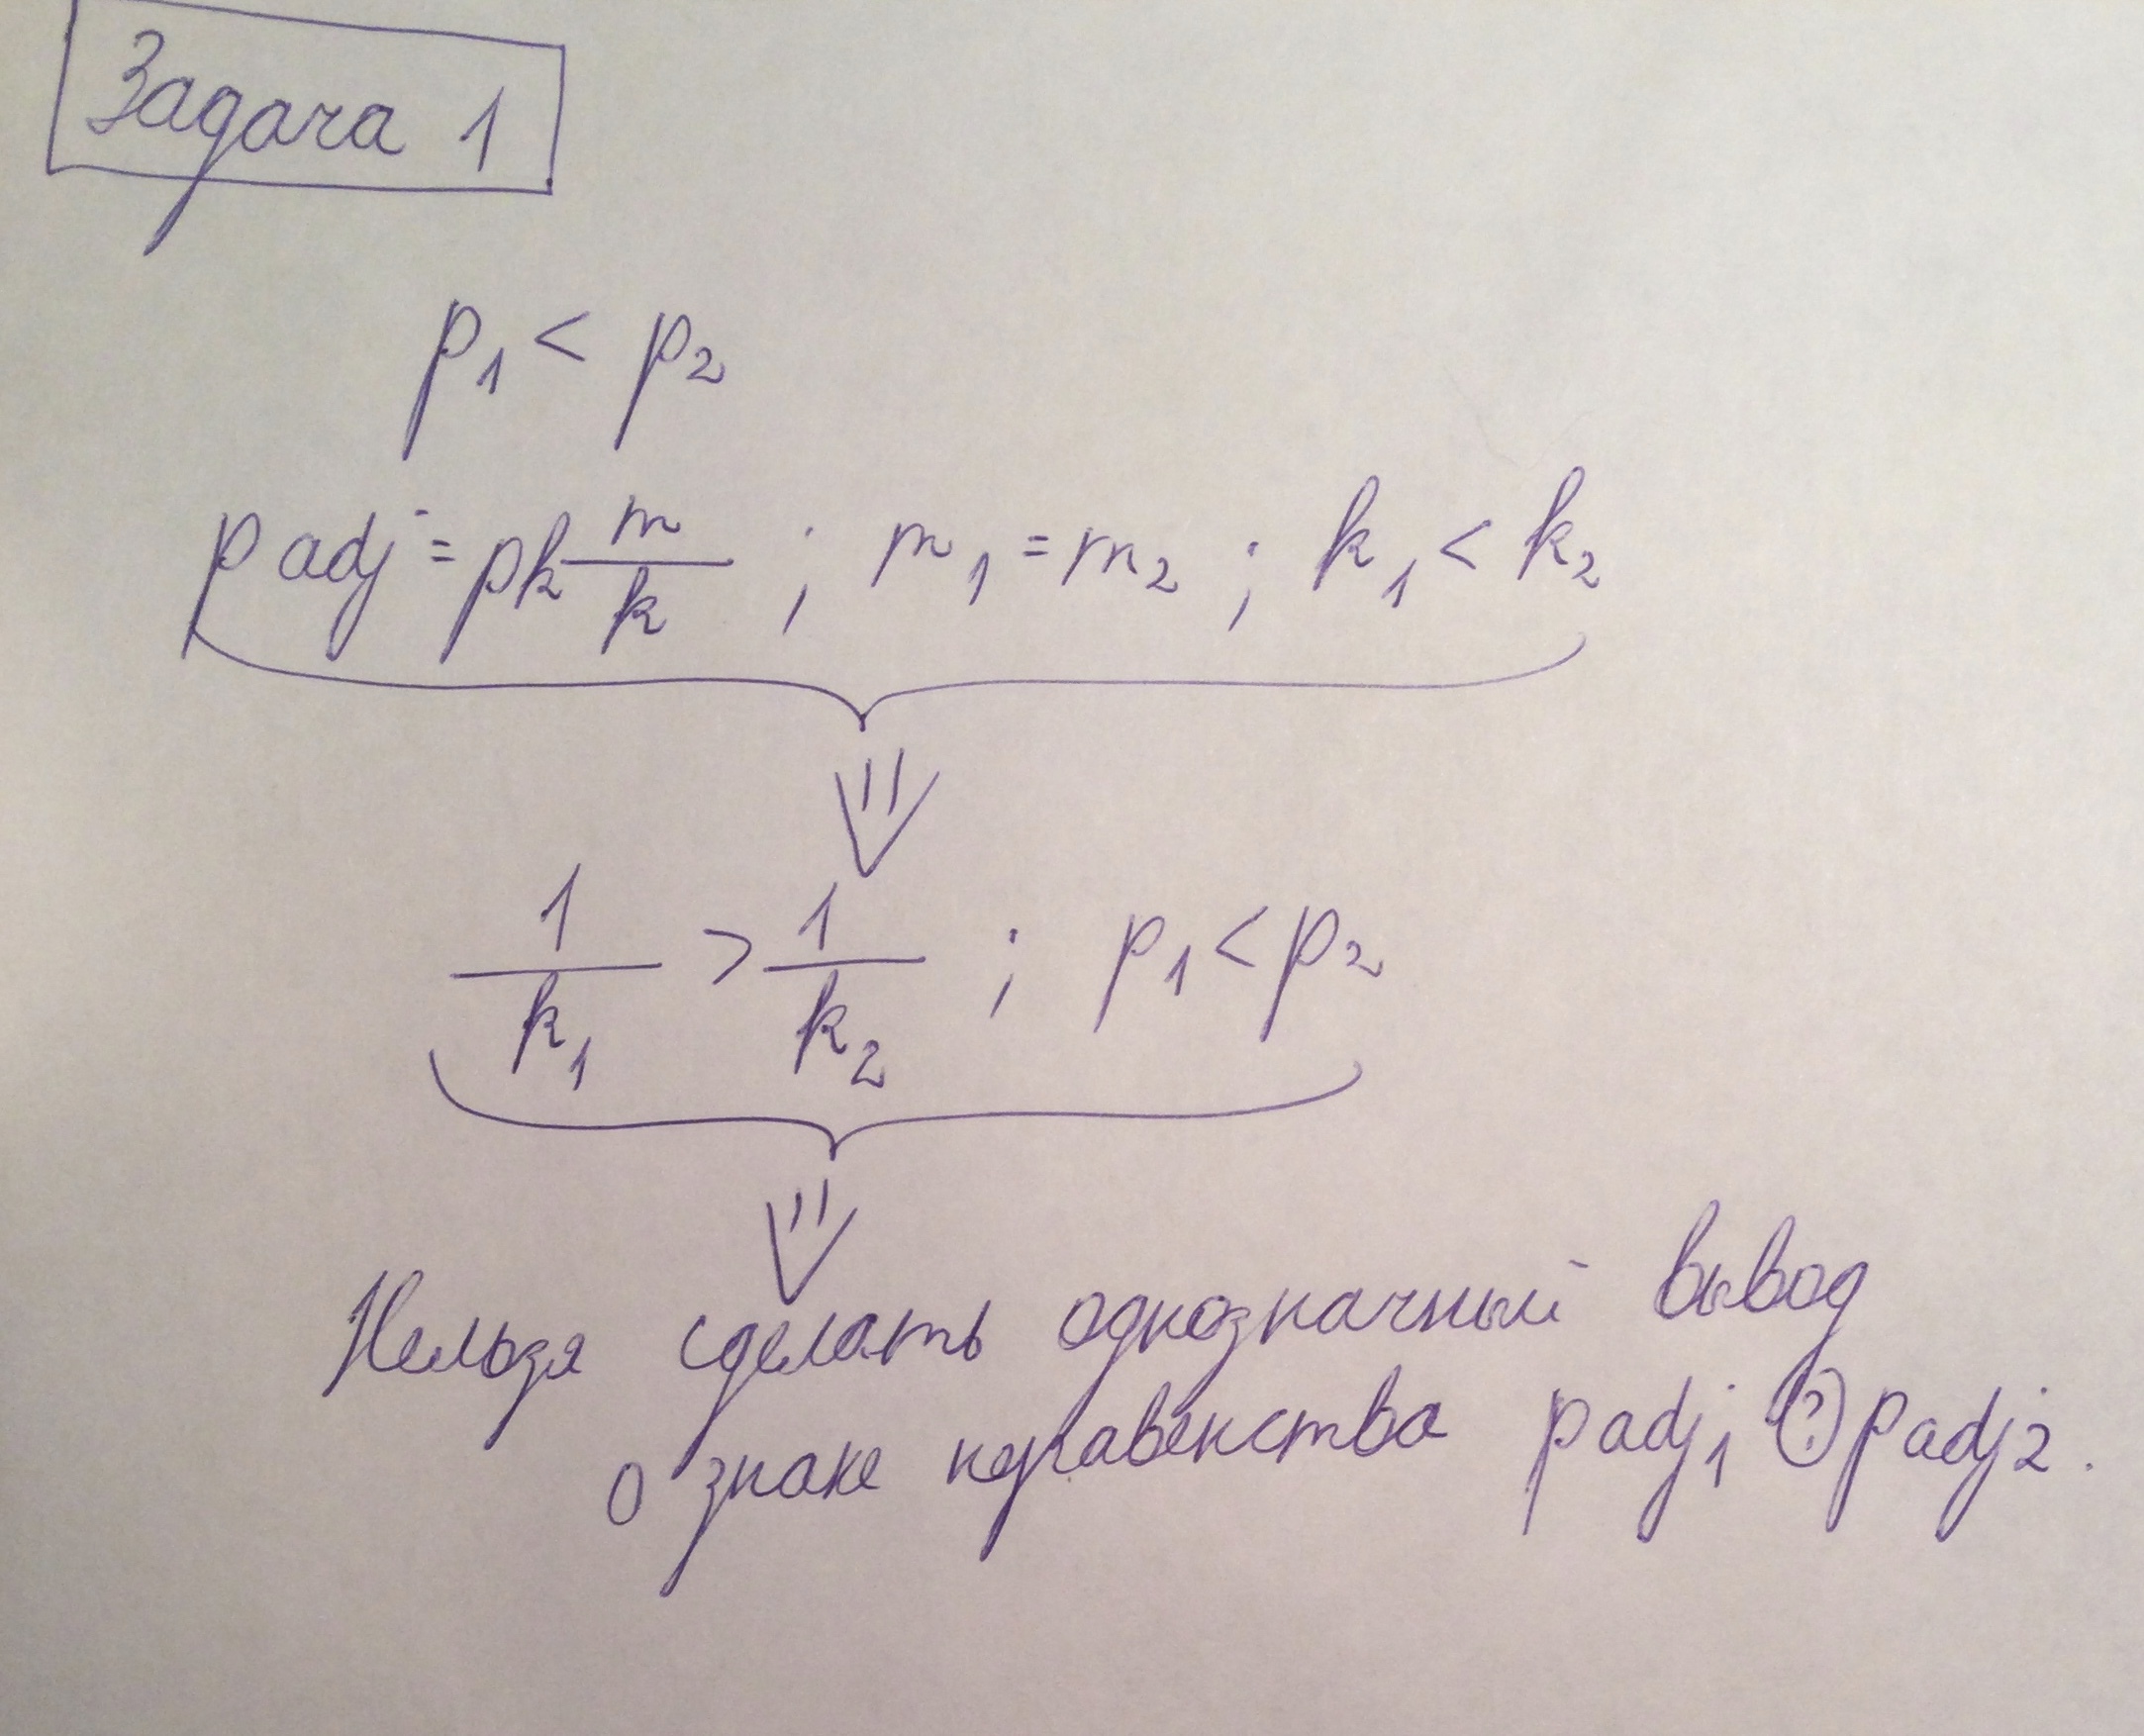 Задача 1
p₁ < p₂
p adj = pk m/k ; m₁ = m₂ ; k₁ < k₂
1/k₁ > 1/k₂ ; p₁ < p₂
Нельзя сделать однозначный вывод
о знаке неравенства p adj₁ (?) p adj₂.